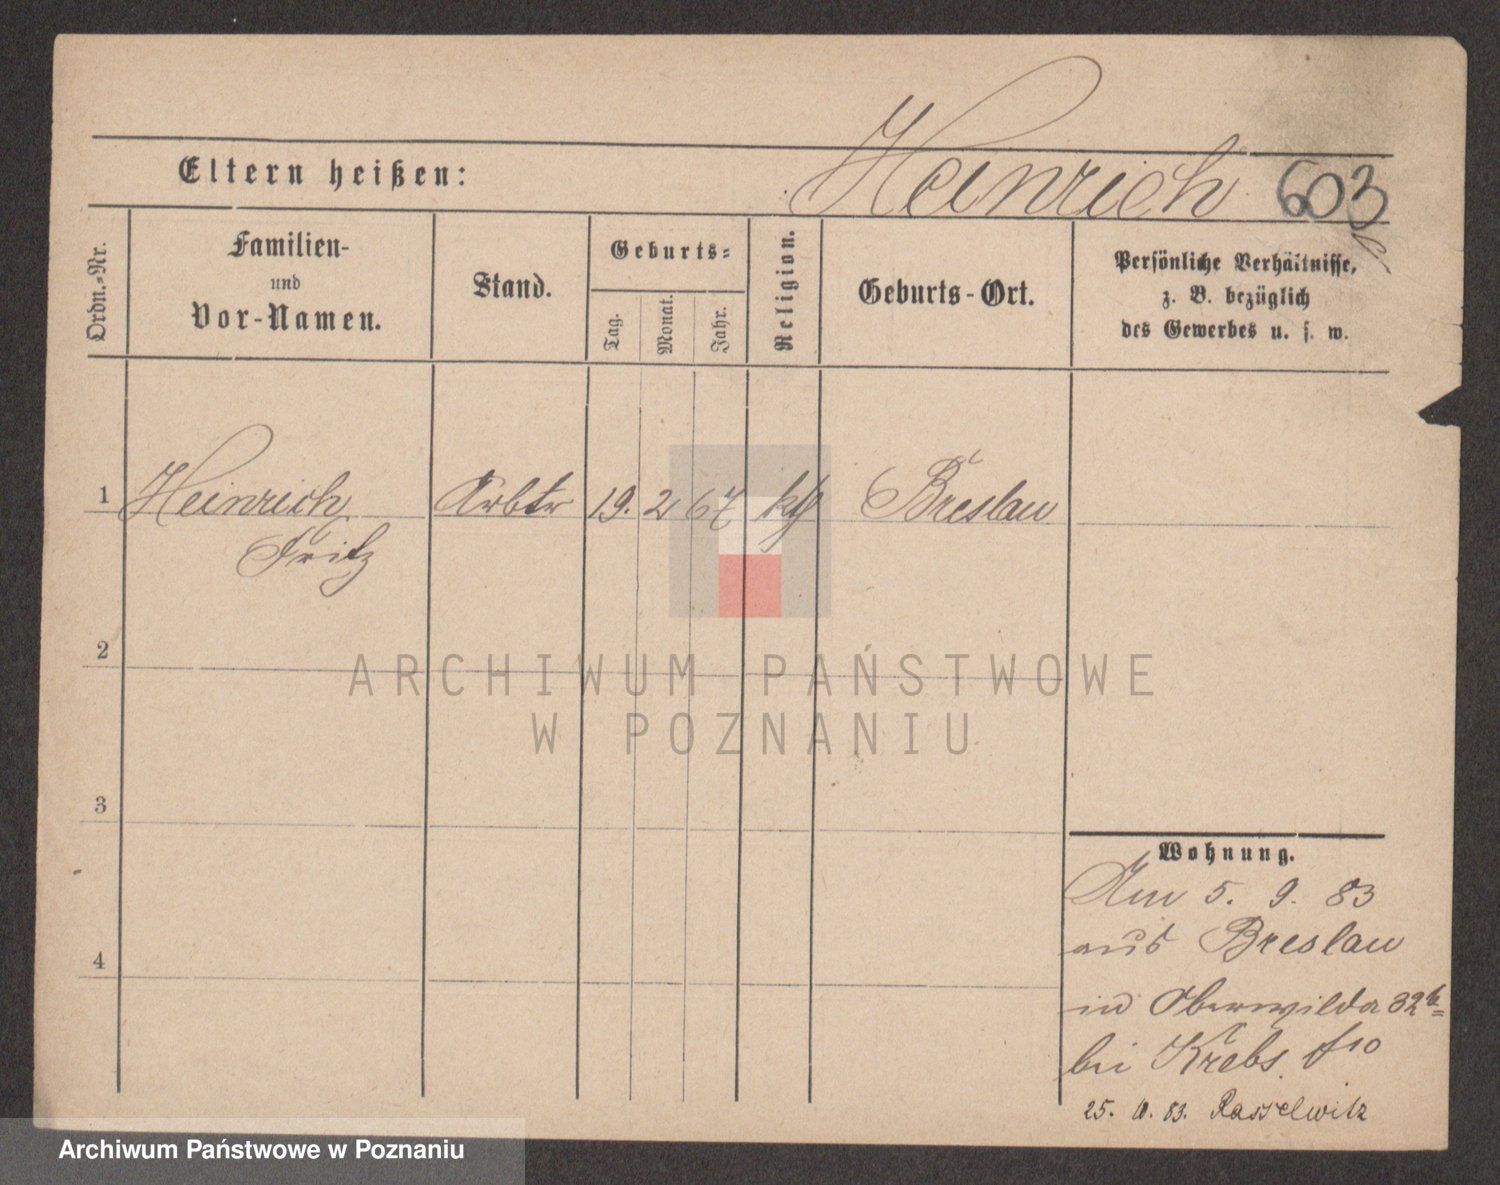 Heinrich 603
Eltern heißen:
Ordn.-Nr.
Familien-
und
Vor-Namen.
Stand.
Geburts-
Tag.
Monat.
Jahr.
Religion.
Geburts-Ort.
Persönliche Verhältnisse,
z. B. bezüglich
des Gewerbes u. s. w.
1 Heinrich Arbtr 19. 2 67 kth Breslau
Fritz
2
3
4
Wohnung.
Am 5. 9. 83
aus Breslau
in Oberwilda 32
bei Krebs
25. 83. Rasselwitz
ARCHIWUM PAŃSTWOWE
W POZNANIU
Archiwum Państwowe w Poznaniu